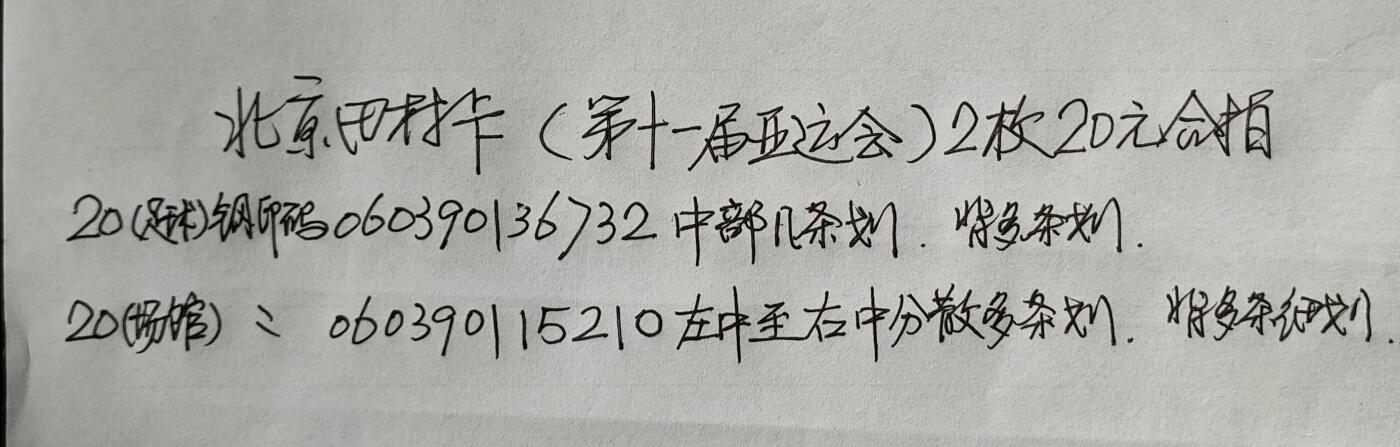 北京田村卡（第十一届亚运会）2枚20元合拍
20(足球)钢印码060390136732中部几条划．背多条划．
20(场馆)〃060390115210左中至右中分散多条划．背多条细划．